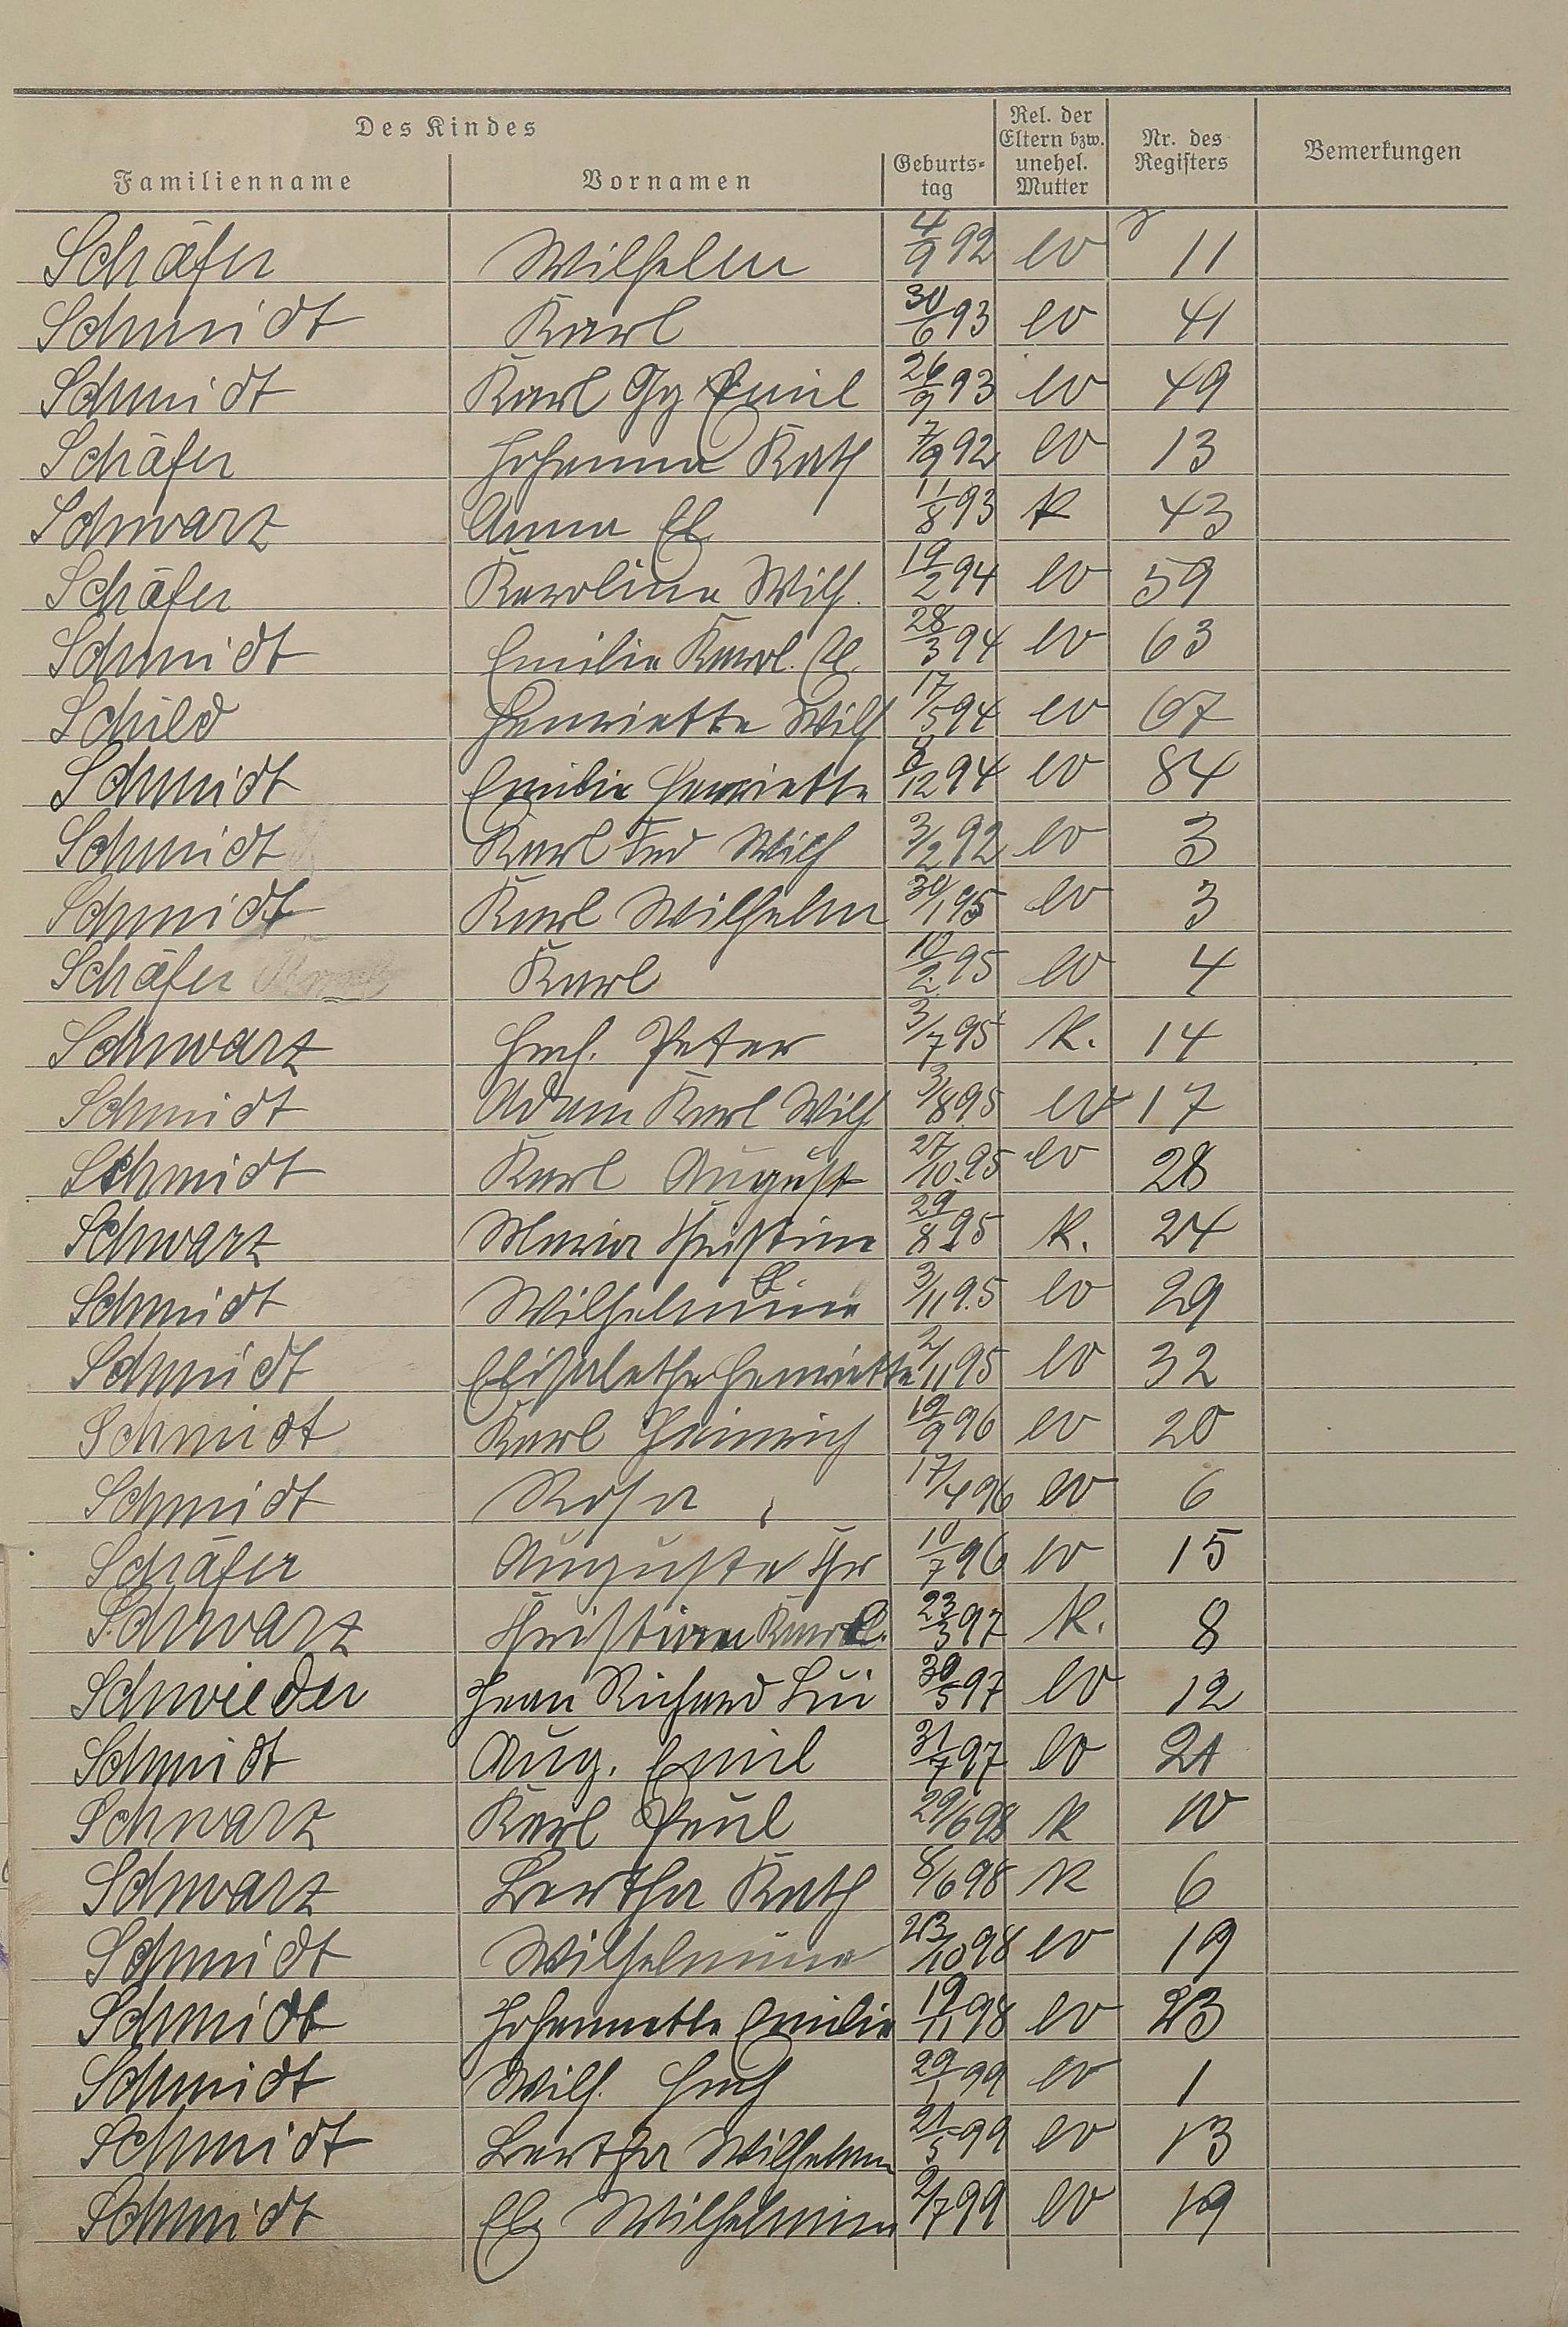 Des Kindes
Familienname Vornamen Geburts=tag Rel. der Eltern bzw. unehel. Mutter Nr. des Registers Bemerkungen
Schäfer Wilhelm 4/9 92 ev 11
Schmidt Karl 30/6 93 ev 41
Schmidt Karl Gg Emil 26/9 93 ev 49
Schäfer Johanna Kath 7/9 92 ev 13
Schwarz Anna El 11/8 93 K 43
Schäfer Karolina Wilh. 19/2 94 ev 59
Schmidt Emilie Karol. 28/3 94 ev 63
Schild Henriette Wilh 17/5 94 ev 67
Schmidt Emilie Henriette 8/12 94 ev 84
Schmidt Karl Frd Wilh 3/2 92 ev 3
Schmidt Karl Wilhelm 30/1 95 ev 3
Schäfer Karl 10/2 95 ev 4
Schwarz Hch. Peter 3/7 95 K. 14
Schmidt Adam Karl Wilh 3/8 95 ev 17
Schmidt Karl August 27/10 95 ev 28
Schwarz Maria Christina 29/8 95 K. 24
Schmidt Wilhelmine El 3/11 95 ev 29
Schmidt Elisabetha Henriette 2/11 95 ev 32
Schmidt Karl Heinrich 19/9 96 ev 20
Schmidt Rosa 17/4 96 ev 6
Schäfer Auguste Chr 10/7 96 ev 15
Schwarz Christian Karl. 23/3 97 K. 8
Schwieder Jean Richard Lui 30/5 97 ev 12
Schmidt Aug. Emil 31/7 97 ev 21
Schwarz Karl Paul 29/6 98 K 10
Schwarz Bertha Kath 8/6 98 K 6
Schmidt Wilhelmine 23/10 98 ev 19
Schmidt Johannette Emilie 19/11 98 ev 23
Schmidt Wilh. Hch 29/1 99 ev 1
Schmidt Bertha Wilhelm 21/5 99 ev 13
Schmidt Els Wilhelmine 2/7 99 ev 19